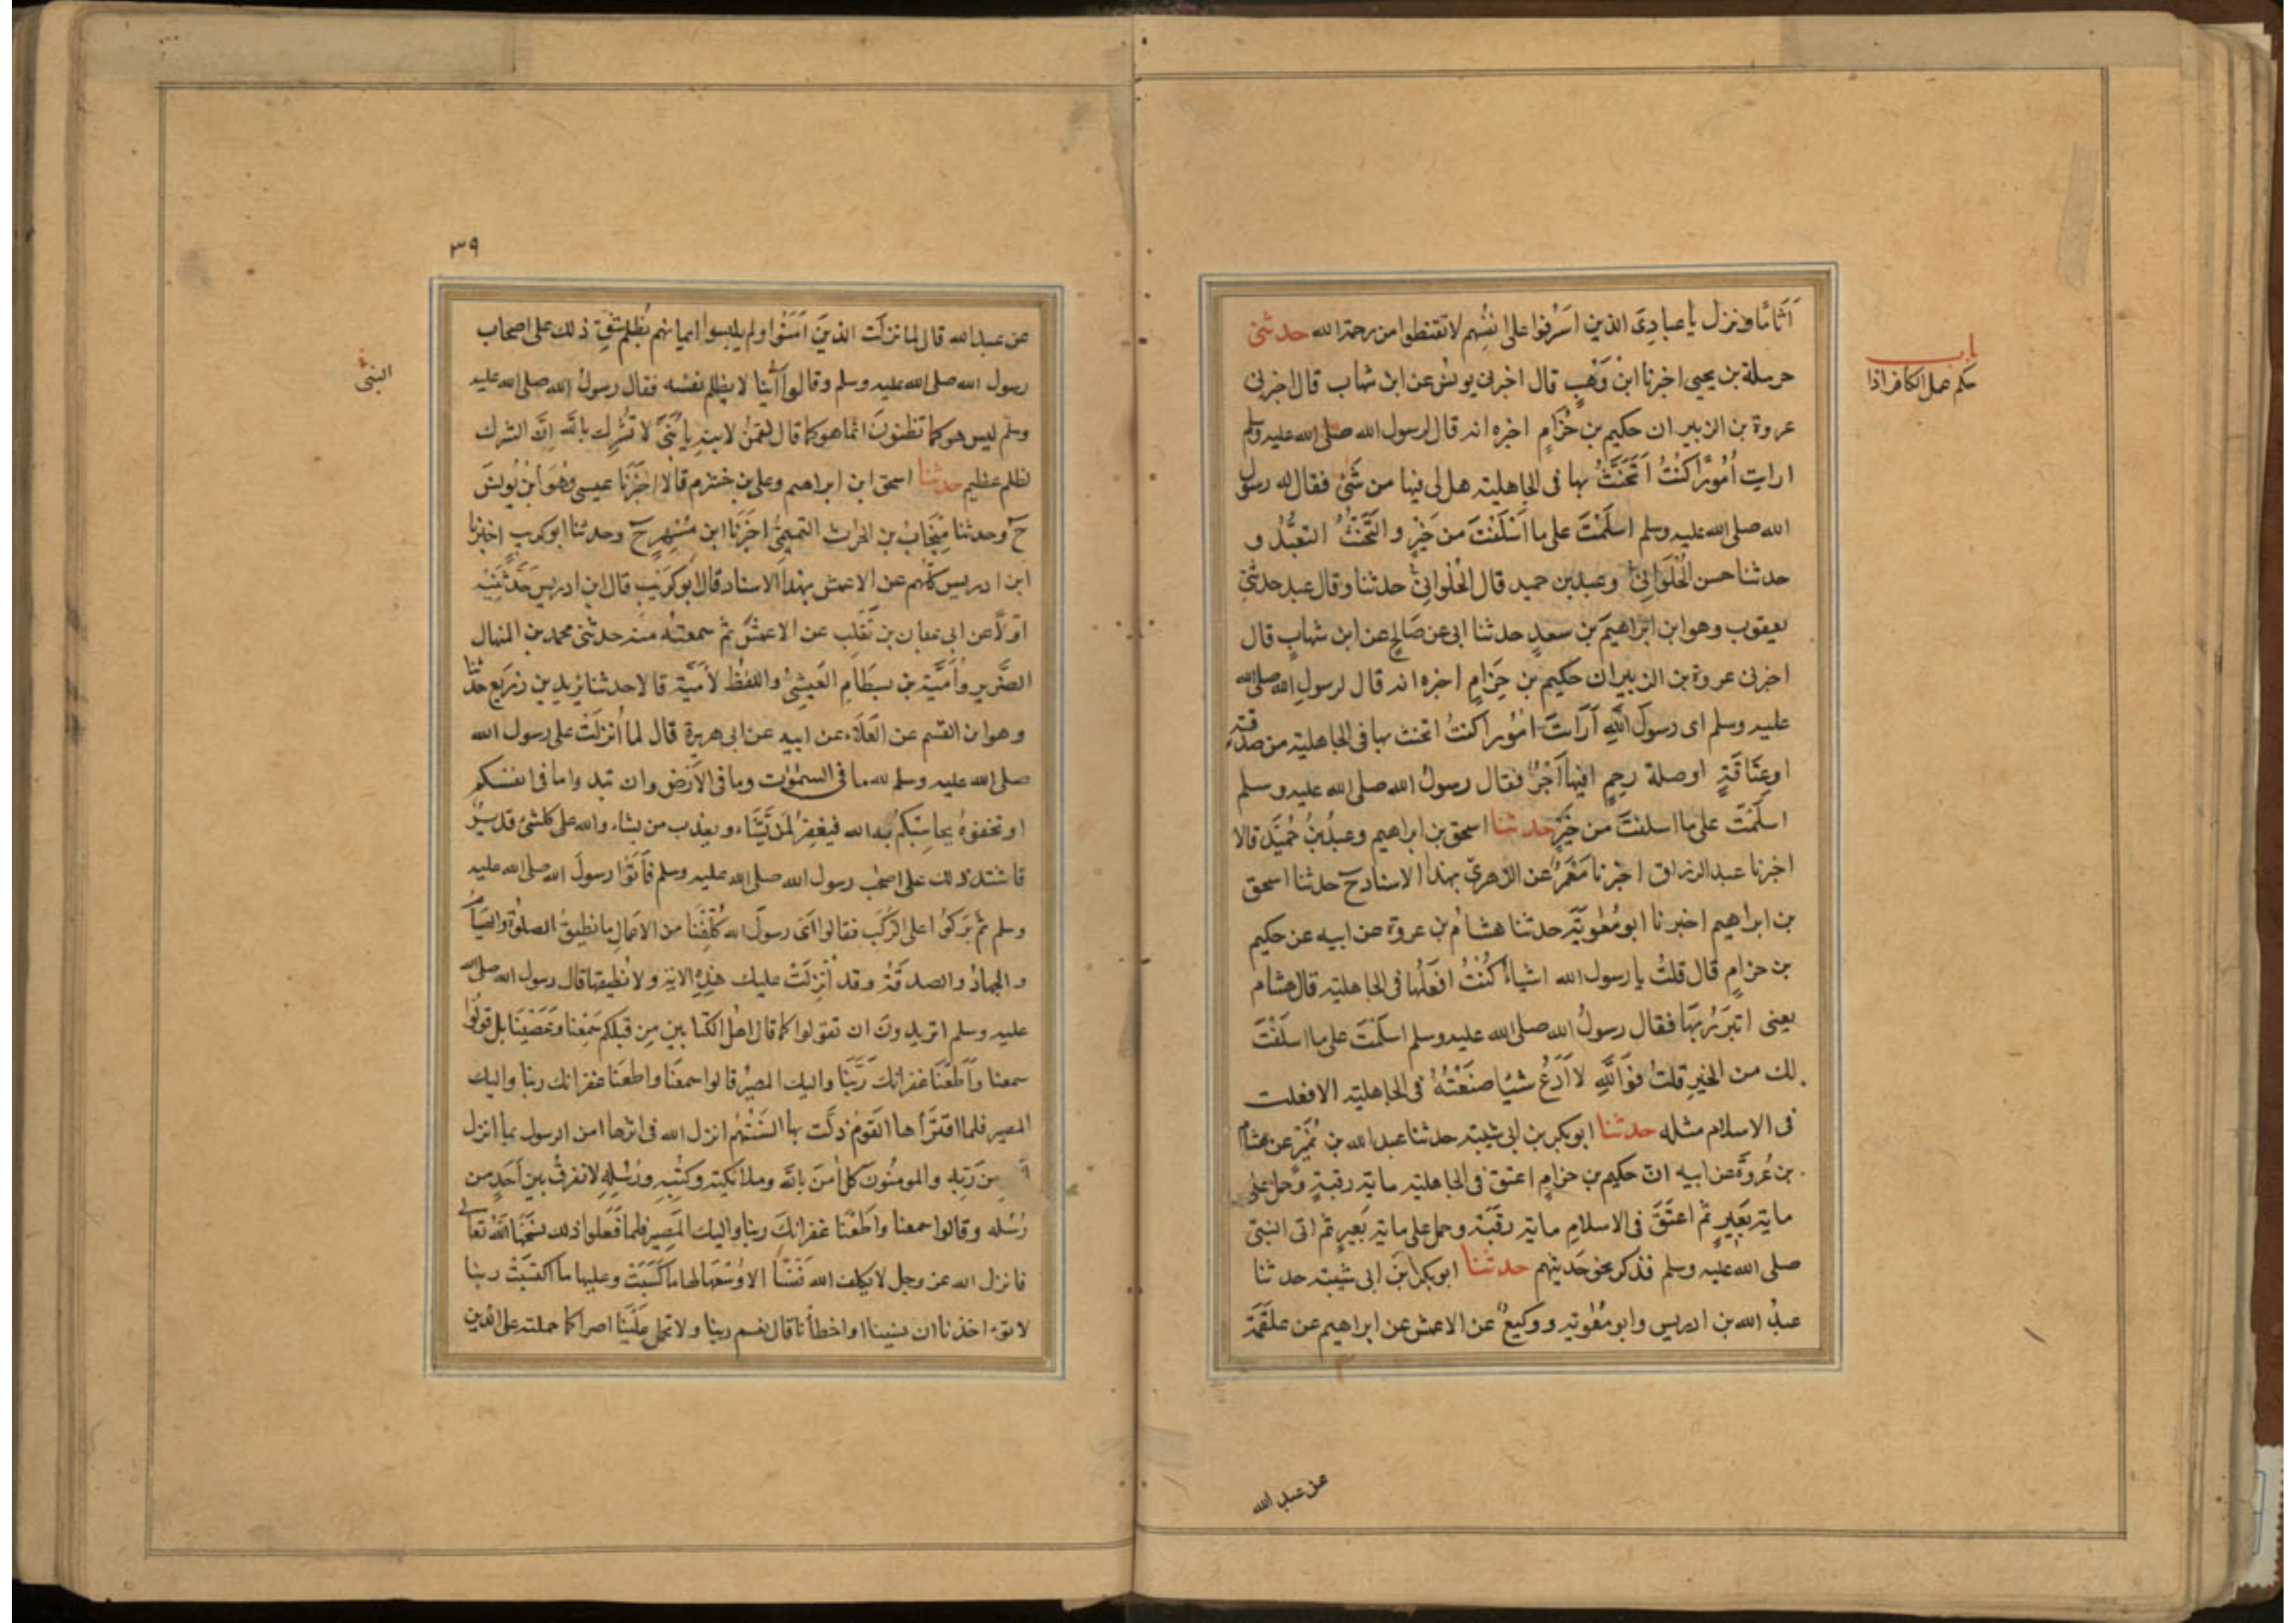 اَثَامًا ونزل يا عبادِىَ الذين اَسْرفوا على انفسِهم لا تقنطوا من رحمة الله حدثنى
باب
حكم عمل الكافر اذا
حرملة بن يحيى اخبرنا ابن وَهْبٍ قال اخبرنى يونس عن ابن شهاب قال اخبرنى
عروة بن الزبير ان حكيم بن حِزَامٍ اخبره انه قال لرسول الله صلى الله عليه وسلم
ارايت اُمُورًا كنْتُ اَتَحَنَّثُ بها فى الجاهلية هل لى فيها من شَىْءٍ فقال له رسول
الله صلى الله عليه وسلم اسلَمْتَ على ما اَسْلَفْتَ من خَيْرٍ والتَّحَنُّثُ التعَبُّدُ و
حدثنا حسن الحُلْوَانِىُّ وعبد بن حميد قال الحُلْوانِىُّ حدثنا وقال عبد حدثنى
يعقوب وهو ابن ابراهيمَ بن سعدٍ حدثنا ابى عن صَالحٍ عن ابن شهابٍ قال
اخبرنى عروة بن الزبير ان حكيم بن حِزَامٍ اخبره انه قال لرسولِ الله صلى الله
عليه وسلم اى رسولَ اللهِ اَرَاَيتَ اُمُورا كنتُ اتحنث بها فى الجاهلية من صدقة
او عِتَاقَةٍ او صلة رحِمٍ افيها اَجْرٌ فقال رسولُ الله صلى الله عليه وسلم
اسلَمْتَ على ما اسلفتَ من خَيرٍ حدثنا اسحق بن ابراهيم وعبدُ بنُ حُمَيْد قالا
اخبرنا عبد الرزاق اخبرنا مَعْمَرٌ عن الزهرىّ بهذا الاسناد ح حدثنا اسحق
بن ابراهيم اخبرنا ابو مُعٰويَة حدثنا هشامُ بن عروة عن ابيه عن حكيم
بن حزامٍ قال قلتُ يا رسول الله اشياءً كُنْتُ افعَلُها فى الجاهلية قال هشام
يعنى اتبَرَّرُ بها فقال رسولُ الله صلى الله عليه وسلم اسلَمْتَ على ما اسلَفْتَ
لك من الخيرِ قلتُ فوَاللهِ لا اَدَعُ شيئا صنَعْتُهُ فى الجاهلية الا فعلت
فى الاسلام مثله حدثنا ابو بكر بن ابى شيبة حدثنا عبد الله بن نُمَيْرٍ عن هشام
بن عُروَةَ عن ابيه انّ حكيم بن حزامٍ اعتق فى الجاهلية ماية رقبةٍ وحمل على
ماية بَعيرٍ ثم اعتَقَ فى الاسلامِ ماية رقَبَة وحمل على ماية بَعيرٍ ثم اتى النبىّ
صلى الله عليه وسلم فذكر نحو حَديثهم حدثنا ابو بكر ابنُ ابى شيبة حدثنا
عبدُ الله بن ادريس وابو مُعٰوية ووكيعٌ عن الاعمش عن ابراهيم عن علقَمَة
عن عبد الله
٣٩
عن عبد الله قال لما نزلَت الذينَ اَمَنُوا ولم يلبسوا ايمانهم بُظلم شقّ ذلك على اصحاب
النبى
رسول الله صلى الله عليه وسلم وقالوا اَيُّنا لا يظلم نفسَه فقال رسولُ الله صلى الله عليه
وسلم ليس هو كما تظنونَ انما هو كما قال لقمٰنُ لابنِهِ يا بُنَىَّ لا تُشْرِك بالله اِنَّ الشرك
لظلم عظيم حدثنا اسحق ابن ابراهيم وعلى بن خشرم قالا اخْبَرَنَا عيسى وهُوَ ابنُ يُونسَ
ح وحدثنا مِنْجَابُ بن الحرث التميمىُّ اخبَرَنا ابن مُسْهِرٍ ح وحدثنا ابو كريب اخبرنا
ابن ادريس كلّهم عن الاعمش بهذا الاسناد قال ابو كرَيْب قال ابن ادريسَ حَدَّثَنِيه
اوّلًا عن ابى عن ابان بن تَغْلِب عن الاعمَشِ ثم سمعتُه منه حدثنى محمد بن المنهال
الضَّرير واُمَيَّة بن بِسطَامِ العَيشِىُّ واللفظُ لاُمَيَّة قالا حدثنا يزيد بن زُرَيْع حدثنا
وهو ابن القسم عن العَلَاء عن ابيه عن ابى هريرة قال لما اُنزلَتْ على رسول الله
صلى الله عليه وسلم لله ما فى السمٰوٰت وما فى الاَرْض وان تبدوا ما فى انفسكم
او تخفوهُ يحاسِبْكم به الله فيغفِرُ لمن يَّشَاء ويعذب من يشاء والله على كلشئ قديرٌ
فاشتدّ ذلك على اصحٰب رسول الله صلى الله عليه وسلم فَاَتَوْا رسولَ الله صلى الله عليه
وسلم ثم بَركُوا على الرُّكَب فقالوا اَىْ رسولَ الله كُلِّفْنا من الاعمَالِ ما نطيقُ الصلٰوة والصيام
والجهادُ والصدقَة وقد اُنْزِلَتْ عليك هٰذِهِ الاية ولا نُطيقها قال رسول الله صلى الله
عليه وسلم اتريدونَ ان تقولوا كما قال اهلُ الكتابينِ مِن قبلِكم سَمِعْنا وَعَصَيْنَا بل قولُوا
سمعنا وَاَطعْنَا غفرانكَ رَبَّنا واليك المصيرُ قالوا سمعْنَا واطعنا غفرانك ربنا واليك
المصير فلما اقترَاَها القَومُ ذلَّت بها اَلسَنَتُهُم انزل الله فى اثرها امن الرسول بما انزل
مِن رَّبِّه والمومنُونَ كلٌ اٰمَنَ بالله وملائكتِه وكُتُبِه ورُسُلِهِ لا نفرقُ بينَ اَحَدٍ من
رُسُله وقالوا سمعنا واَطَعْنا غفرانكَ ربنا واليك المَصِير فلما فَعَلوا ذلك نسَخَها اللهُ تعالى
فانزل الله عز وجل لا يكلف الله نَفْسًا الا وُسْعَها لها ما كَسَبَتْ وعليها ما اكتسَبَتْ ربنا
لا تؤاخذنا ان نسينا او اخطأنا قال نعم ربنا ولا تحمل عَلَيْنا اصرا كما حملته على الذين